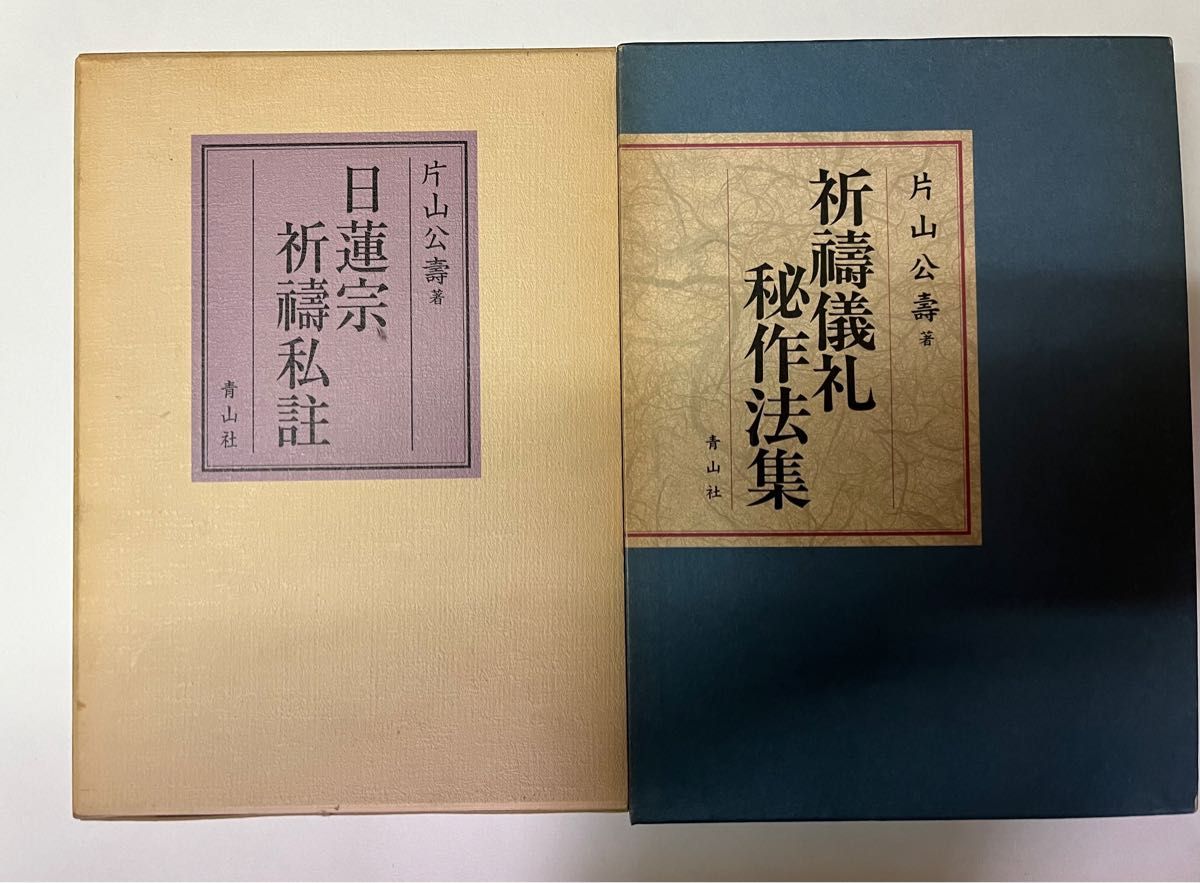 片山公壽著
日蓮宗
祈禱私註
青山社
片山公壽著
祈禱儀礼
秘作法集
青山社